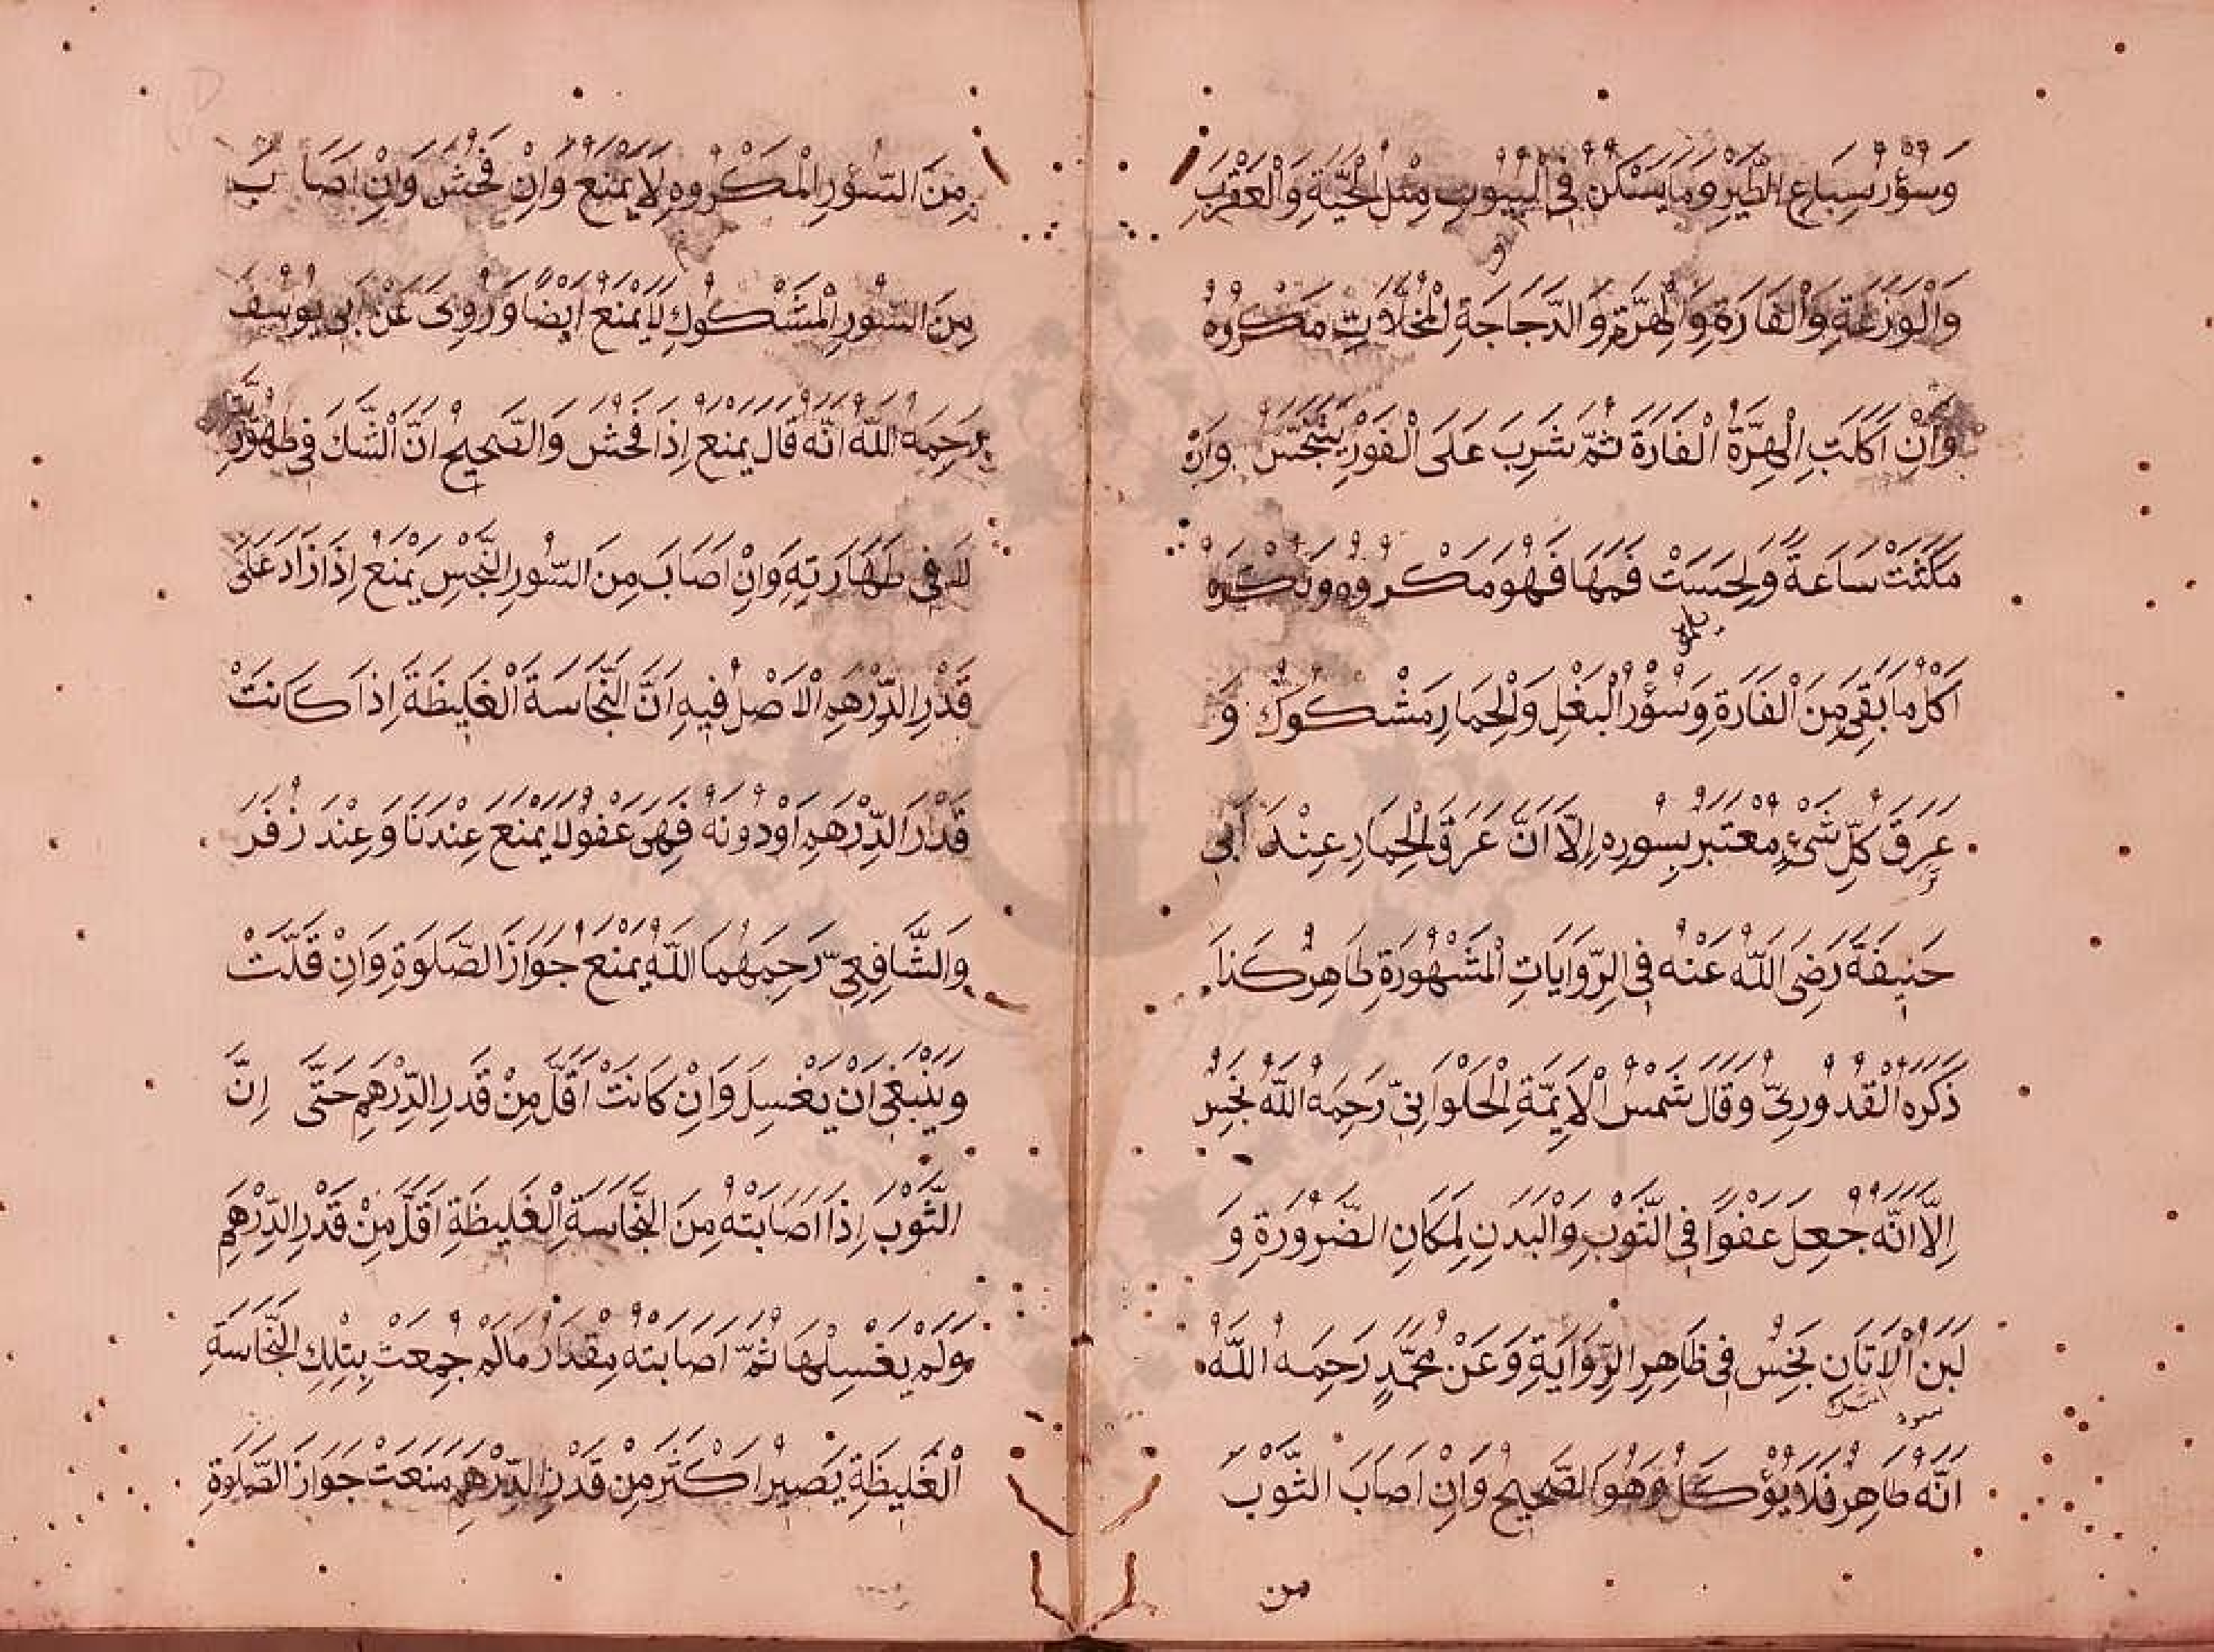 وَسُؤْرُ سِبَاعِ الطَّيْرِ وَمَا يَسْكُنُ فِي الْبُيُوتِ مِثْلُ الْحَيَّةِ وَالْعَقْرَبِ
وَالْوَزَغَةِ وَالْفَارَةِ وَالْهِرَّةِ وَالدَّجَاجَةِ الْمُخَلَّاتِ مَكْرُوهٌ
وَاِنْ اَكَلَتِ الْهِرَّةُ الْفَارَةَ ثُمَّ شَرِبَ عَلَى الْفَوْرِ يَتَنَجَّسُ وَاِنْ
مَكَثَتْ سَاعَةً وَلَحِسَتْ فَمَهَا فَهُوَ مَكْرُوهٌ وَيُكْرَهُ
اَكْلُ مَا بَقِيَ مِنَ الْفَارَةِ وَسُؤْرُ الْبَغْلِ وَالْحِمَارِ مَشْكُوكٌ وَ
عَرَقُ كُلِّ شَيْءٍ مُعْتَبَرٌ بِسُورِهِ اِلَّا اَنَّ عَرَقَ الْحِمَارِ عِنْدَ اَبِي
حَنِيفَةَ رَضِيَ اللّٰهُ عَنْهُ فِي الرِّوَايَاتِ الْمَشْهُورَةِ طَاهِرٌ كَذَا
ذَكَرَهُ الْقُدُورِيُّ وَقَالَ شَمْسُ الْاَيِمَّةِ الْحَلْوَانِيُّ رَحِمَهُ اللّٰهُ نَجِسٌ
اِلَّا اَنَّهُ جُعِلَ عَفْوًا فِي الثَّوْبِ وَالْبَدَنِ لِمَكَانِ الضَّرُورَةِ وَ
لَبَنُ الْاَتَانِ نَجِسٌ فِي ظَاهِرِ الرِّوَايَةِ وَعَنْ مُحَمَّدٍ رَحِمَهُ اللّٰهُ
اَنَّهُ طَاهِرٌ فَلَا يُؤْكَلُ وَهُوَ الصَّحِيحُ وَاِنْ اَصَابَ الثَّوْبَ
من
مِنَ السُّؤْرِ الْمَكْرُوهِ لَا يَمْنَعُ وَاِنْ فَحُشَ وَاِنْ اَصَابَ
مِنَ السُّورِ الْمَشْكُوكِ لَا يَمْنَعُ اَيْضًا وَرُوِيَ عَنْ اَبِي يُوسُفَ
رَحِمَهُ اللّٰهُ اَنَّهُ قَالَ يَمْنَعُ اِذَا فَحُشَ وَالصَّحِيحُ اَنَّ الشَّكَ فِي طَهُورِيَّتِهِ
لَا فِي طَهَارَتِهِ وَاِنْ اَصَابَ مِنَ السُّورِ النَّجِسِ يَمْنَعُ اِذَا زَادَ عَلَى
قَدْرِ الدِّرْهَمِ الْاَصْلُ فِيهِ اَنَّ النَّجَاسَةَ الْغَلِيظَةَ اِذَا كَانَتْ
قَدْرَ الدِّرْهَمِ اَوْ دُونَهُ فَهِيَ عَفْوٌ لَا يَمْنَعُ عِنْدَنَا وَعِنْدَ زُفَرَ
وَالشَّافِعِيِّ رَحِمَهُمَا اللّٰهُ يَمْنَعُ جَوَازَ الصَّلٰوةِ وَاِنْ قَلَّتْ
وَيَنْبَغِي اَنْ يَغْسِلَ وَاِنْ كَانَتْ اَقَلَّ مِنْ قَدَرِ الدِّرْهَمِ حَتَّى اِنَّ
الثَّوْبَ اِذَا اَصَابَتْهُ مِنَ النَّجَاسَةِ الْغَلِيظَةِ اَقَلَّ مِنْ قَدْرِ الدِّرْهَمِ
وَلَمْ يَغْسِلْهَا ثُمَّ اَصَابَتْهُ مِقْدَارُ مَا لَمْ جُمِعَتْ بِتِلْكَ النَّجَاسَةِ
الْغَلِيظَةِ يَصِيرُ اَكْثَرَ مِنْ قَدْرِ الدِّرْهَمِ مَنَعَتْ جَوَازَ الصَّلٰوةِ